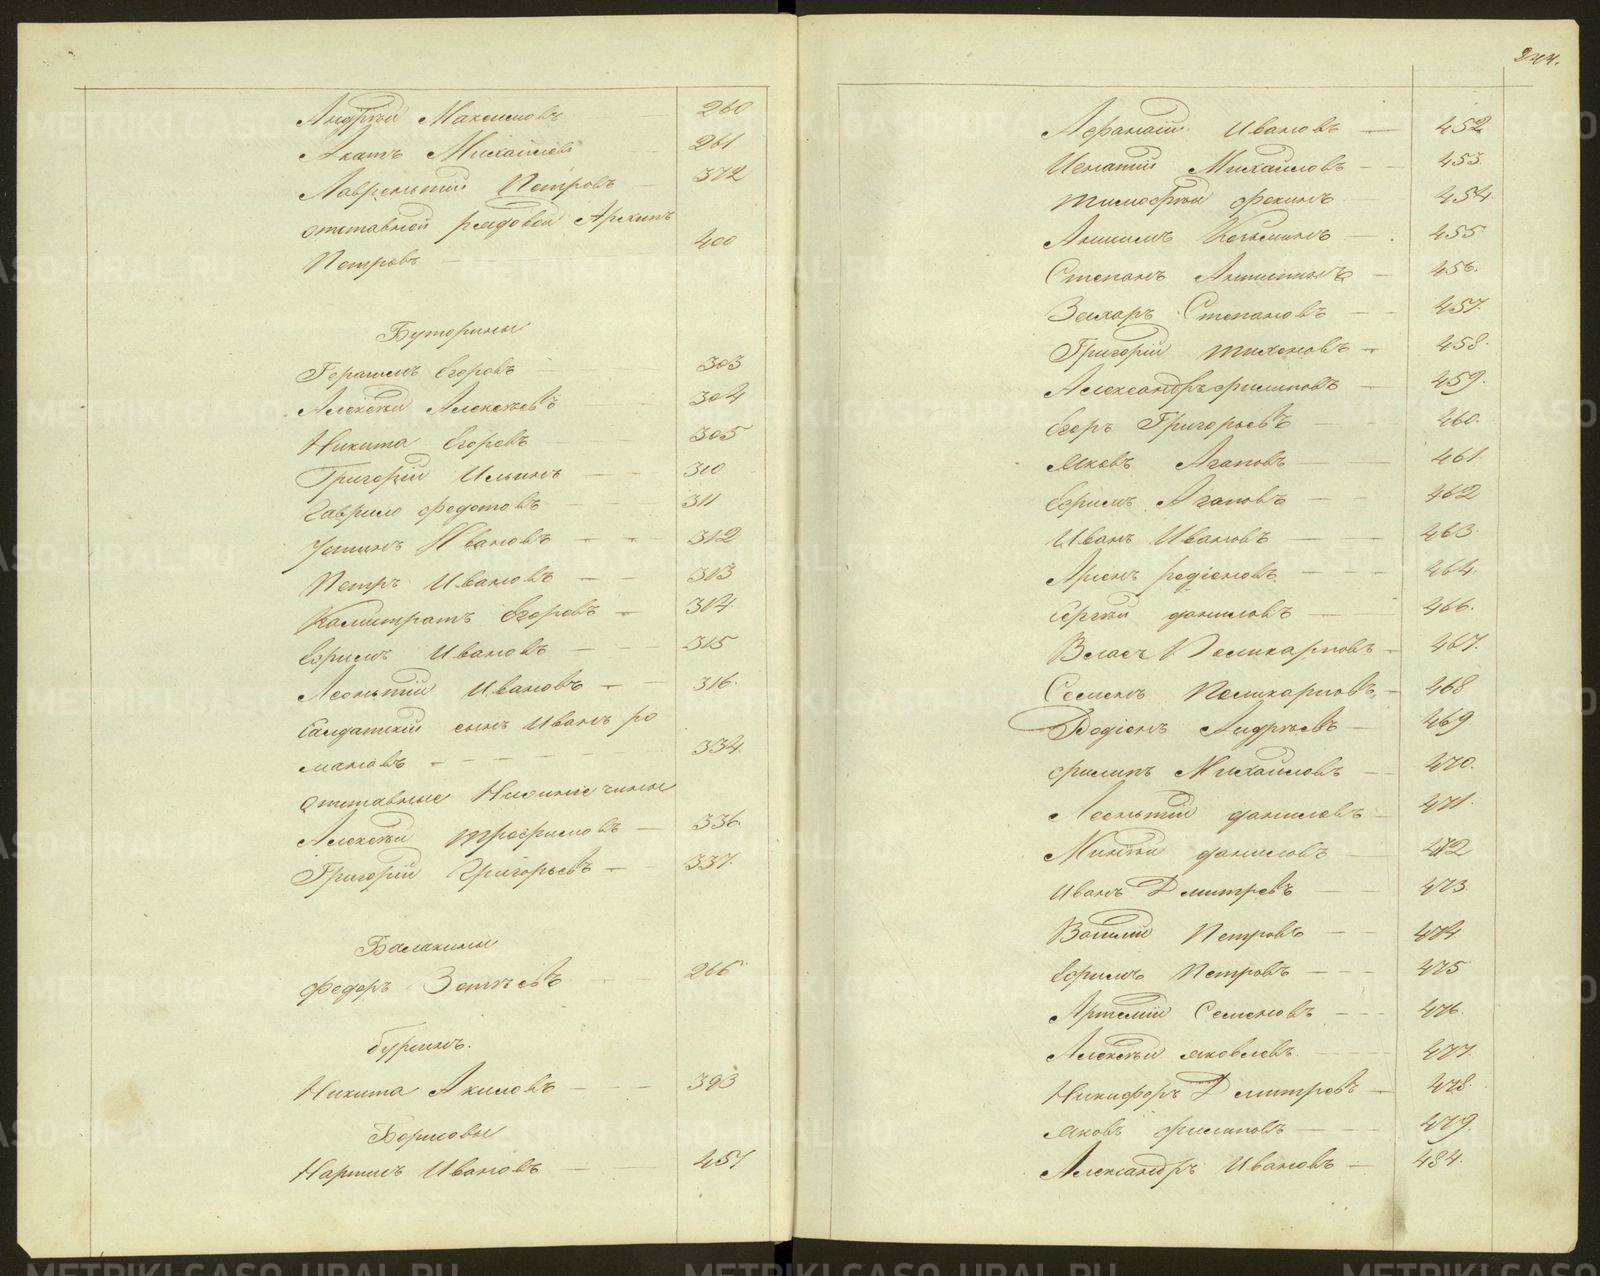 Андрей Максимовъ 260
Акатъ Михайловъ 261
Лаврентий Петровъ — 372
отставной рядовой Архипъ
Петровъ — 400
Буторины
Герасимъ Егоровъ — 303
Алексѣй Алексѣевъ 304
Никита Егоровъ — 305
Григорій Ильинъ — 310
Гаврило Федотовъ — 311
Устинъ Ивановъ — 312
Петръ Ивановъ — 313
Калистратъ Егоровъ — 314.
Ефимъ Ивановъ — 315
Леонтий Ивановъ — 316.
Салдатский сынъ Иванъ Ро
мановъ — 334.
Отставные Нижние чины
Алексѣй Трофимовъ — 336
Григорій Григорьевъ — 337.
Балакины
Федоръ Зотѣевъ 266
Бурминъ.
Никита Акиловъ — 393
Борисовы
Ивановъ — 451
344.
Афанасий Ивановъ — 452
Игнатий Михайловъ — 453.
Тимофѣй Фокинъ 454.
Анисимъ Козьминъ — 455
Степанъ — 456.
Захаръ Степановъ — 457.
Григорій Тихоновъ — 458.
Александръ Филиповъ — 459.
Егоръ Григорьевъ — 460.
Яковъ Агаповъ — 461.
Ефимъ Агаповъ — 462
Иванъ Ивановъ — 463.
Родіоновъ — 464.
Сергѣй Даниловъ — 466.
Власъ Поликарповъ — 467.
Семенъ Поликарповъ — 468
Родіонъ Андрѣевъ — 469
Филипъ Михайловъ — 470.
Леонтий Даниловъ — 471.
Даниловъ — 472
Иванъ Дмитревъ — 473.
Василий Петровъ — 474
Ефимъ Петровъ — 475
Артемий Семеновъ — 476.
Алексѣй Яковлевъ — 477
Никифоръ Дмитревъ — 478.
Яковъ Филиповъ — 479.
Александръ Ивановъ — 484.
METRIKI.GASO-URAL.RU